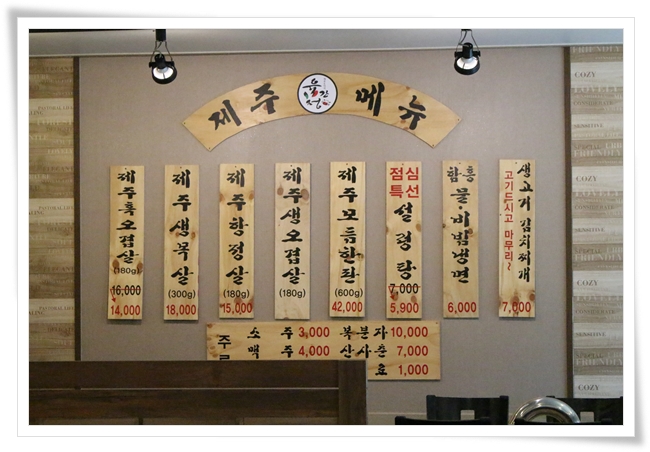 제주 메뉴
제주흑오겹살
(180g)
16,000
14,000
제주생목살
(300g)
18,000
제주항정살
(180g)
15,000
제주생오겹살
(180g)
제주모듬한판
(600g)
42,000
점심
특선
설렁탕
7,000
5,900
함흥
물·비빔냉면
6,000
생고기 김치찌개
고기드시고 마무리~
7,000
소주 3,000 복분자 10,000
맥주 4,000 산사춘 7,000
1,000
COZY
SENSITIVE
COZY
COZY